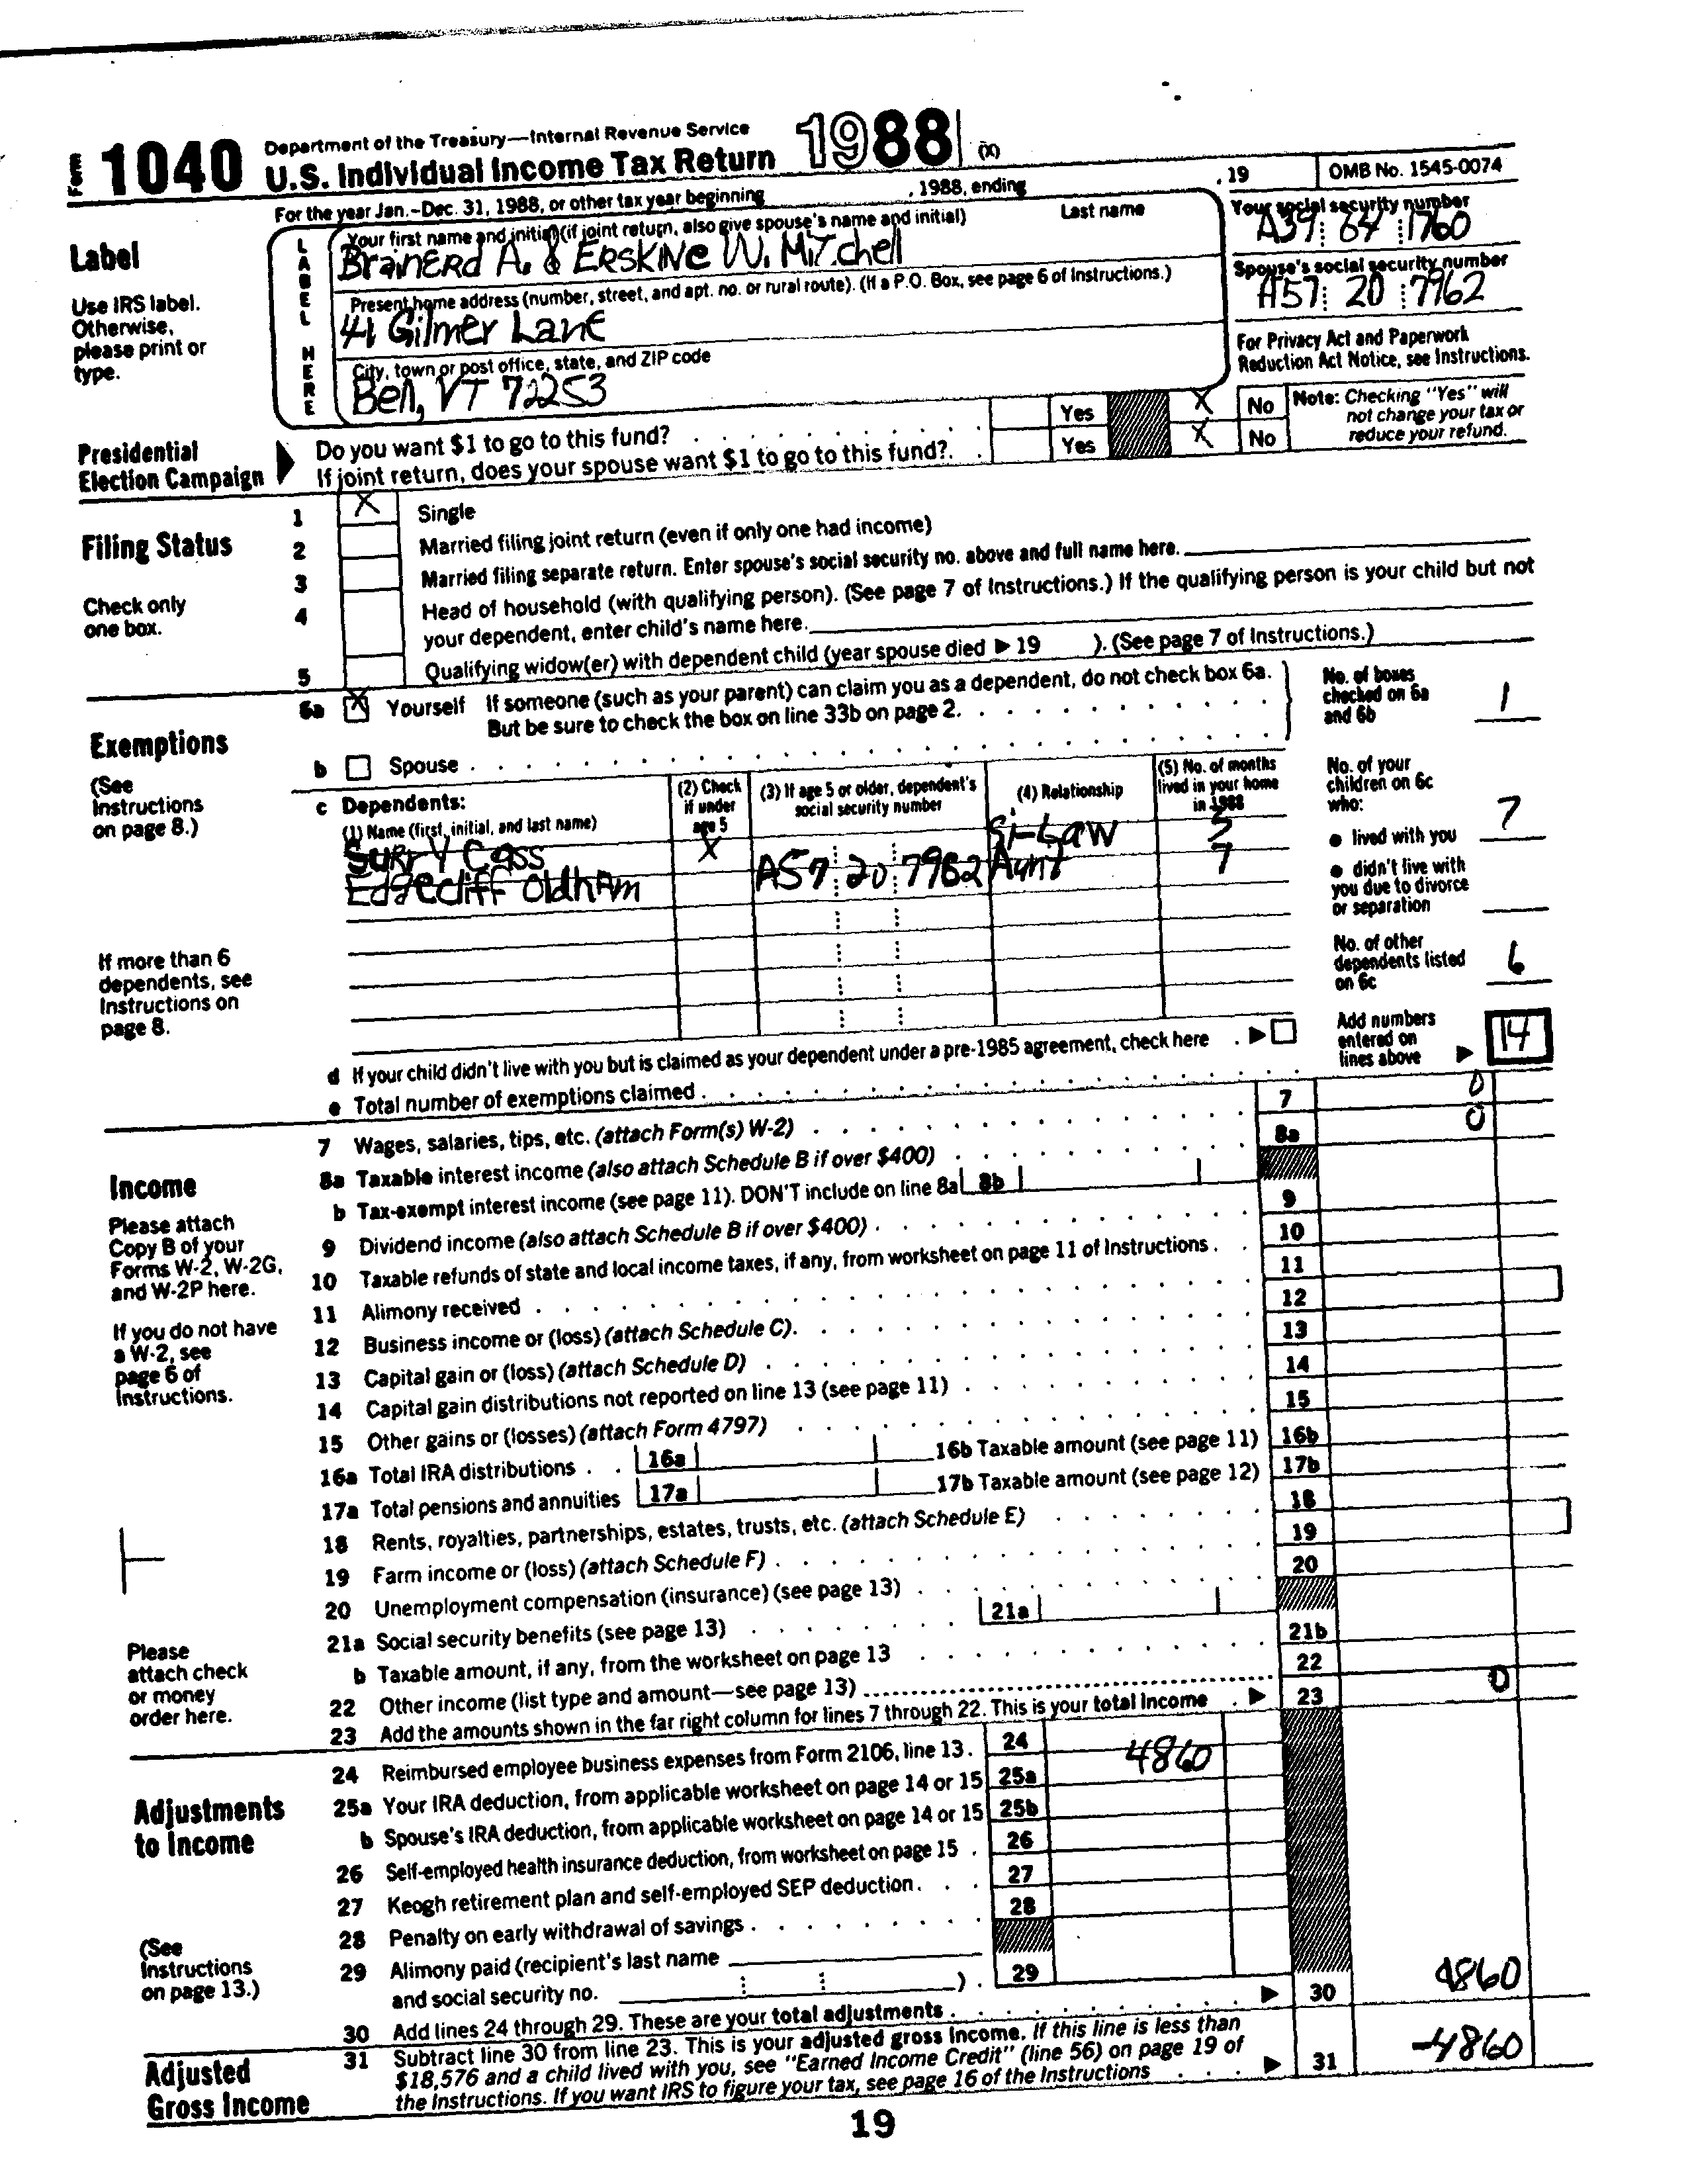 Form 1040 Department of the Treasury—Internal Revenue Service
U.S. Individual Income Tax Return 1988 (X)
For the year Jan.–Dec. 31, 1988, or other tax year beginning , 1988, ending , 19 OMB No. 1545-0074
Label
Use IRS label.
Otherwise,
please print or
type.
LABEL HERE
Your first name and initial (if joint return, also give spouse's name and initial) Last name
Brainerd A. & Erskine W. Mitchell
Your social security number
A39 64 1760
Present home address (number, street, and apt. no. or rural route). (If a P.O. Box, see page 6 of Instructions.)
41 Gilmer Lane
Spouse's social security number
A57 20 7962
City, town or post office, state, and ZIP code
Bell, VT 72253
For Privacy Act and Paperwork
Reduction Act Notice, see Instructions.
Presidential
Election Campaign
Do you want $1 to go to this fund? Yes X No
If joint return, does your spouse want $1 to go to this fund?. Yes X No
Note: Checking "Yes" will
not change your tax or
reduce your refund.
Filing Status
Check only
one box.
1 X Single
2 Married filing joint return (even if only one had income)
3 Married filing separate return. Enter spouse's social security no. above and full name here.
4 Head of household (with qualifying person). (See page 7 of Instructions.) If the qualifying person is your child but not
your dependent, enter child's name here.
5 Qualifying widow(er) with dependent child (year spouse died ▶ 19 ). (See page 7 of Instructions.)
Exemptions
(See
Instructions
on page 8.)
If more than 6
dependents, see
Instructions on
page 8.
6a X Yourself If someone (such as your parent) can claim you as a dependent, do not check box 6a.
But be sure to check the box on line 33b on page 2.
b Spouse
No. of boxes
checked on 6a
and 6b 1
c Dependents:
(1) Name (first, initial, and last name)
(2) Check
if under
age 5
(3) If age 5 or older, dependent's
social security number
(4) Relationship
(5) No. of months
lived in your home
in 1988
Surry Cass X Si-Law
Edgecliff Oldham A57 20 7962 Aunt 7
No. of your
children on 6c
who:
● lived with you 7
● didn't live with
you due to divorce
or separation
No. of other
dependents listed
on 6c 6
d If your child didn't live with you but is claimed as your dependent under a pre-1985 agreement, check here ▶
e Total number of exemptions claimed
Add numbers
entered on
lines above ▶ 14
Income
Please attach
Copy B of your
Forms W-2, W-2G,
and W-2P here.
If you do not have
a W-2, see
page 6 of
Instructions.
Please
attach check
or money
order here.
7 Wages, salaries, tips, etc. (attach Form(s) W-2) 7 0
8a Taxable interest income (also attach Schedule B if over $400) 8a 0
b Tax-exempt interest income (see page 11). DON'T include on line 8a 8b
9 Dividend income (also attach Schedule B if over $400) 9
10 Taxable refunds of state and local income taxes, if any, from worksheet on page 11 of Instructions 10
11 Alimony received 11
12 Business income or (loss) (attach Schedule C) 12
13 Capital gain or (loss) (attach Schedule D) 13
14 Capital gain distributions not reported on line 13 (see page 11) 14
15 Other gains or (losses) (attach Form 4797) 15
16a Total IRA distributions 16a 16b Taxable amount (see page 11) 16b
17a Total pensions and annuities 17a 17b Taxable amount (see page 12) 17b
18 Rents, royalties, partnerships, estates, trusts, etc. (attach Schedule E) 18
19 Farm income or (loss) (attach Schedule F) 19
20 Unemployment compensation (insurance) (see page 13) 20
21a Social security benefits (see page 13) 21a
b Taxable amount, if any, from the worksheet on page 13 21b
22 Other income (list type and amount—see page 13) 22
23 Add the amounts shown in the far right column for lines 7 through 22. This is your total income ▶ 23 0
Adjustments
to Income
(See
Instructions
on page 13.)
24 Reimbursed employee business expenses from Form 2106, line 13. 24 4860
25a Your IRA deduction, from applicable worksheet on page 14 or 15 25a
b Spouse's IRA deduction, from applicable worksheet on page 14 or 15 25b
26 Self-employed health insurance deduction, from worksheet on page 15 26
27 Keogh retirement plan and self-employed SEP deduction 27
28 Penalty on early withdrawal of savings 28
29 Alimony paid (recipient's last name
and social security no. ) 29
30 Add lines 24 through 29. These are your total adjustments ▶ 30 4860
Adjusted
Gross Income
31 Subtract line 30 from line 23. This is your adjusted gross income. If this line is less than
$18,576 and a child lived with you, see "Earned Income Credit" (line 56) on page 19 of
the Instructions. If you want IRS to figure your tax, see page 16 of the Instructions ▶ 31 -4860
19